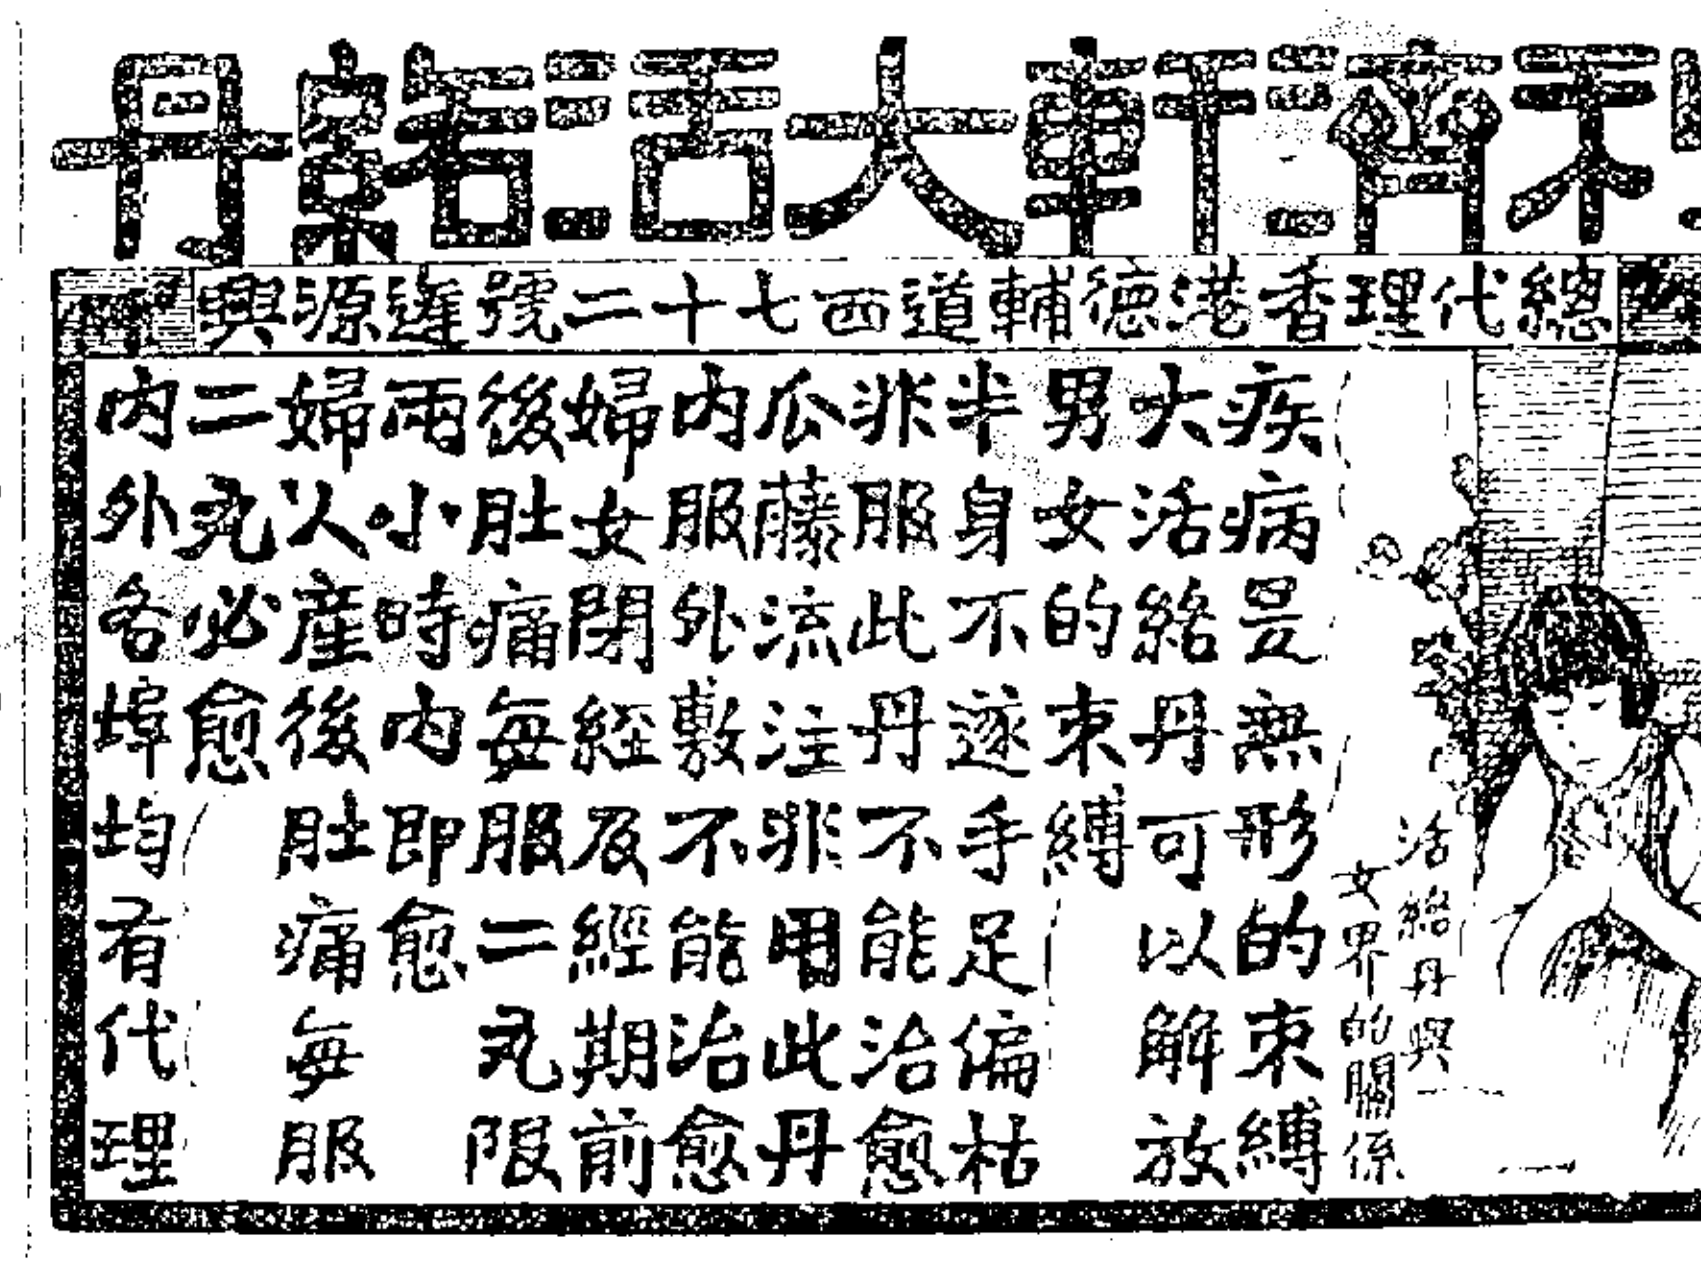 禾濟軒大活絡丹
總代理香港德輔道西七十二號源興
活絡丹與
女界的關係
疾病是無形的束縛
大活絡丹可以解放
男女的束縛
半身不遂手足偏枯
非服此丹不能治愈
瓜藤流注非用此丹
內服外敷不能治愈
婦女閉經及經期前
後肚痛每服二丸限
兩小時內即愈
婦人產後肚痛每服
二丸必愈
內外各埠均有代理